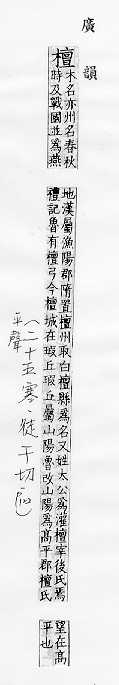 廣韻
檀
木名亦州名春秋
時及戰國並為燕
地漢屬漁陽郡隋置檀州取白檀縣為名又姓太公為灌檀宰後氏焉
禮記魯有檀弓今檀城在瑕丘瑕丘屬山陽魯改山陽為高平郡檀氏
望在高
平也
(二十五寒、徒干切
平聲